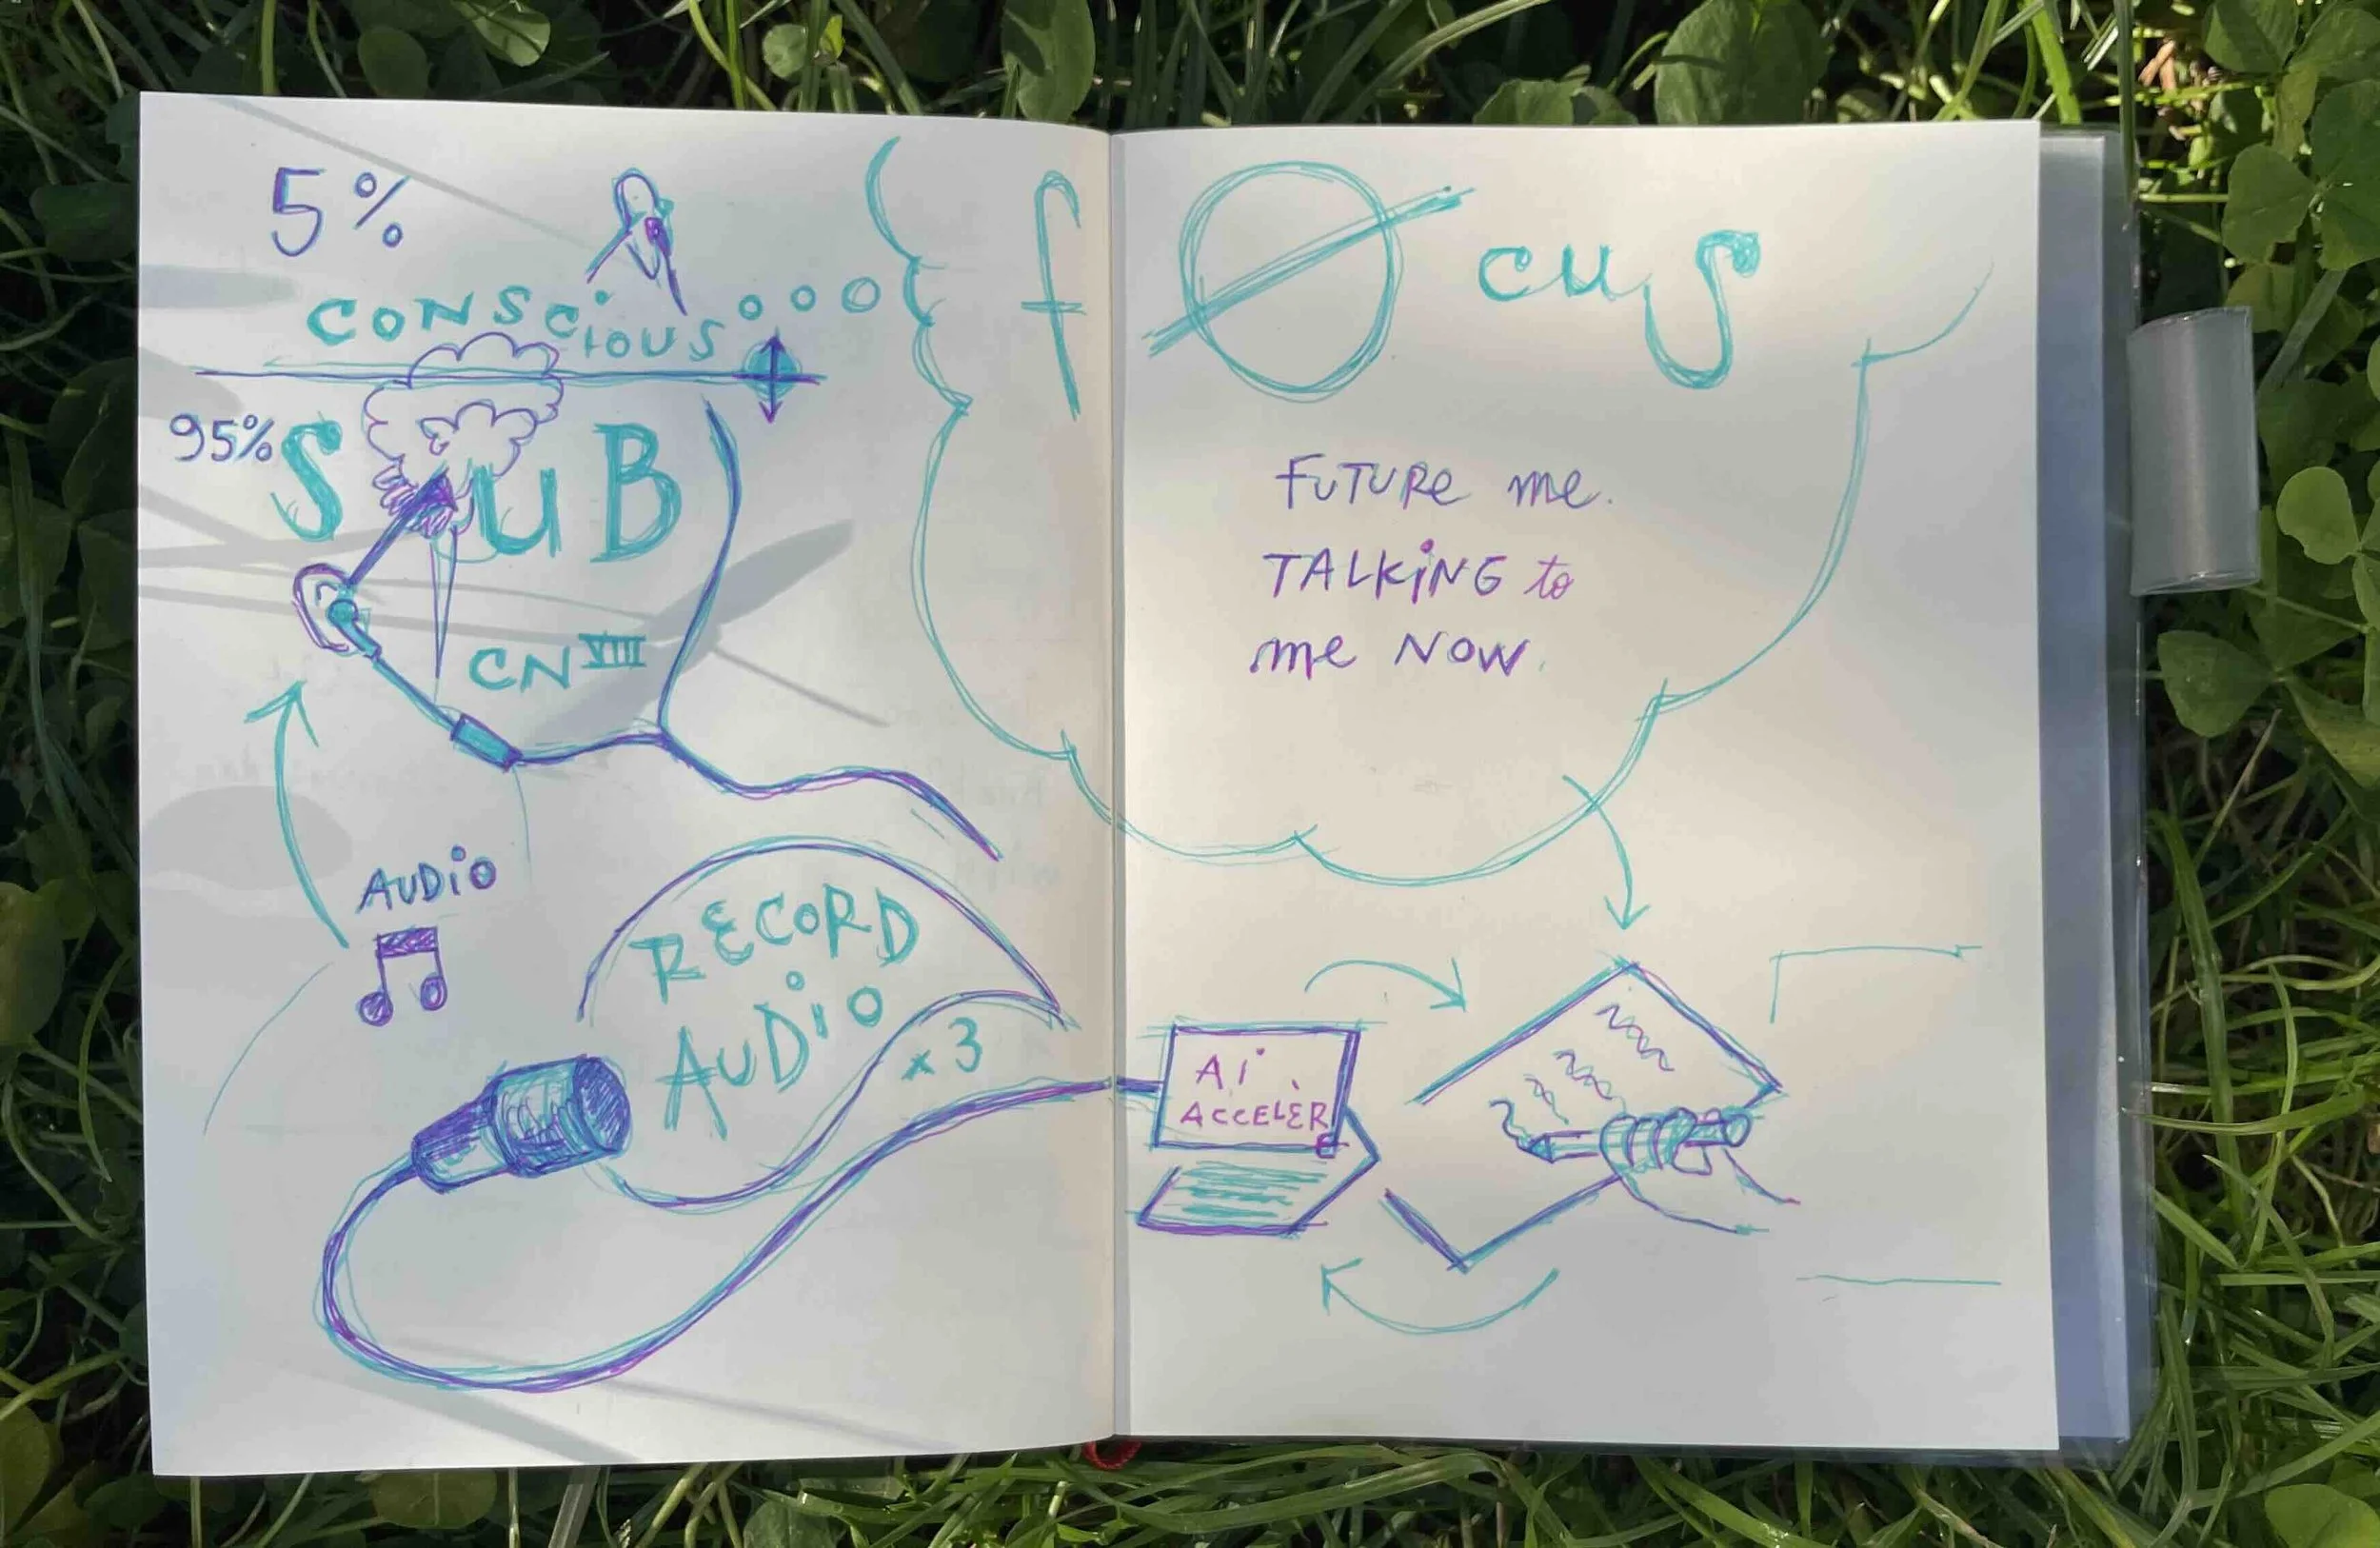 5%
CONSCiOUS
95% SUB
CN VIII
AUDiO
RECORD
AUDiO
x 3
fØcuS
FUTURe me.
TALKiNG to
me NOW.
Ai
ACCELER